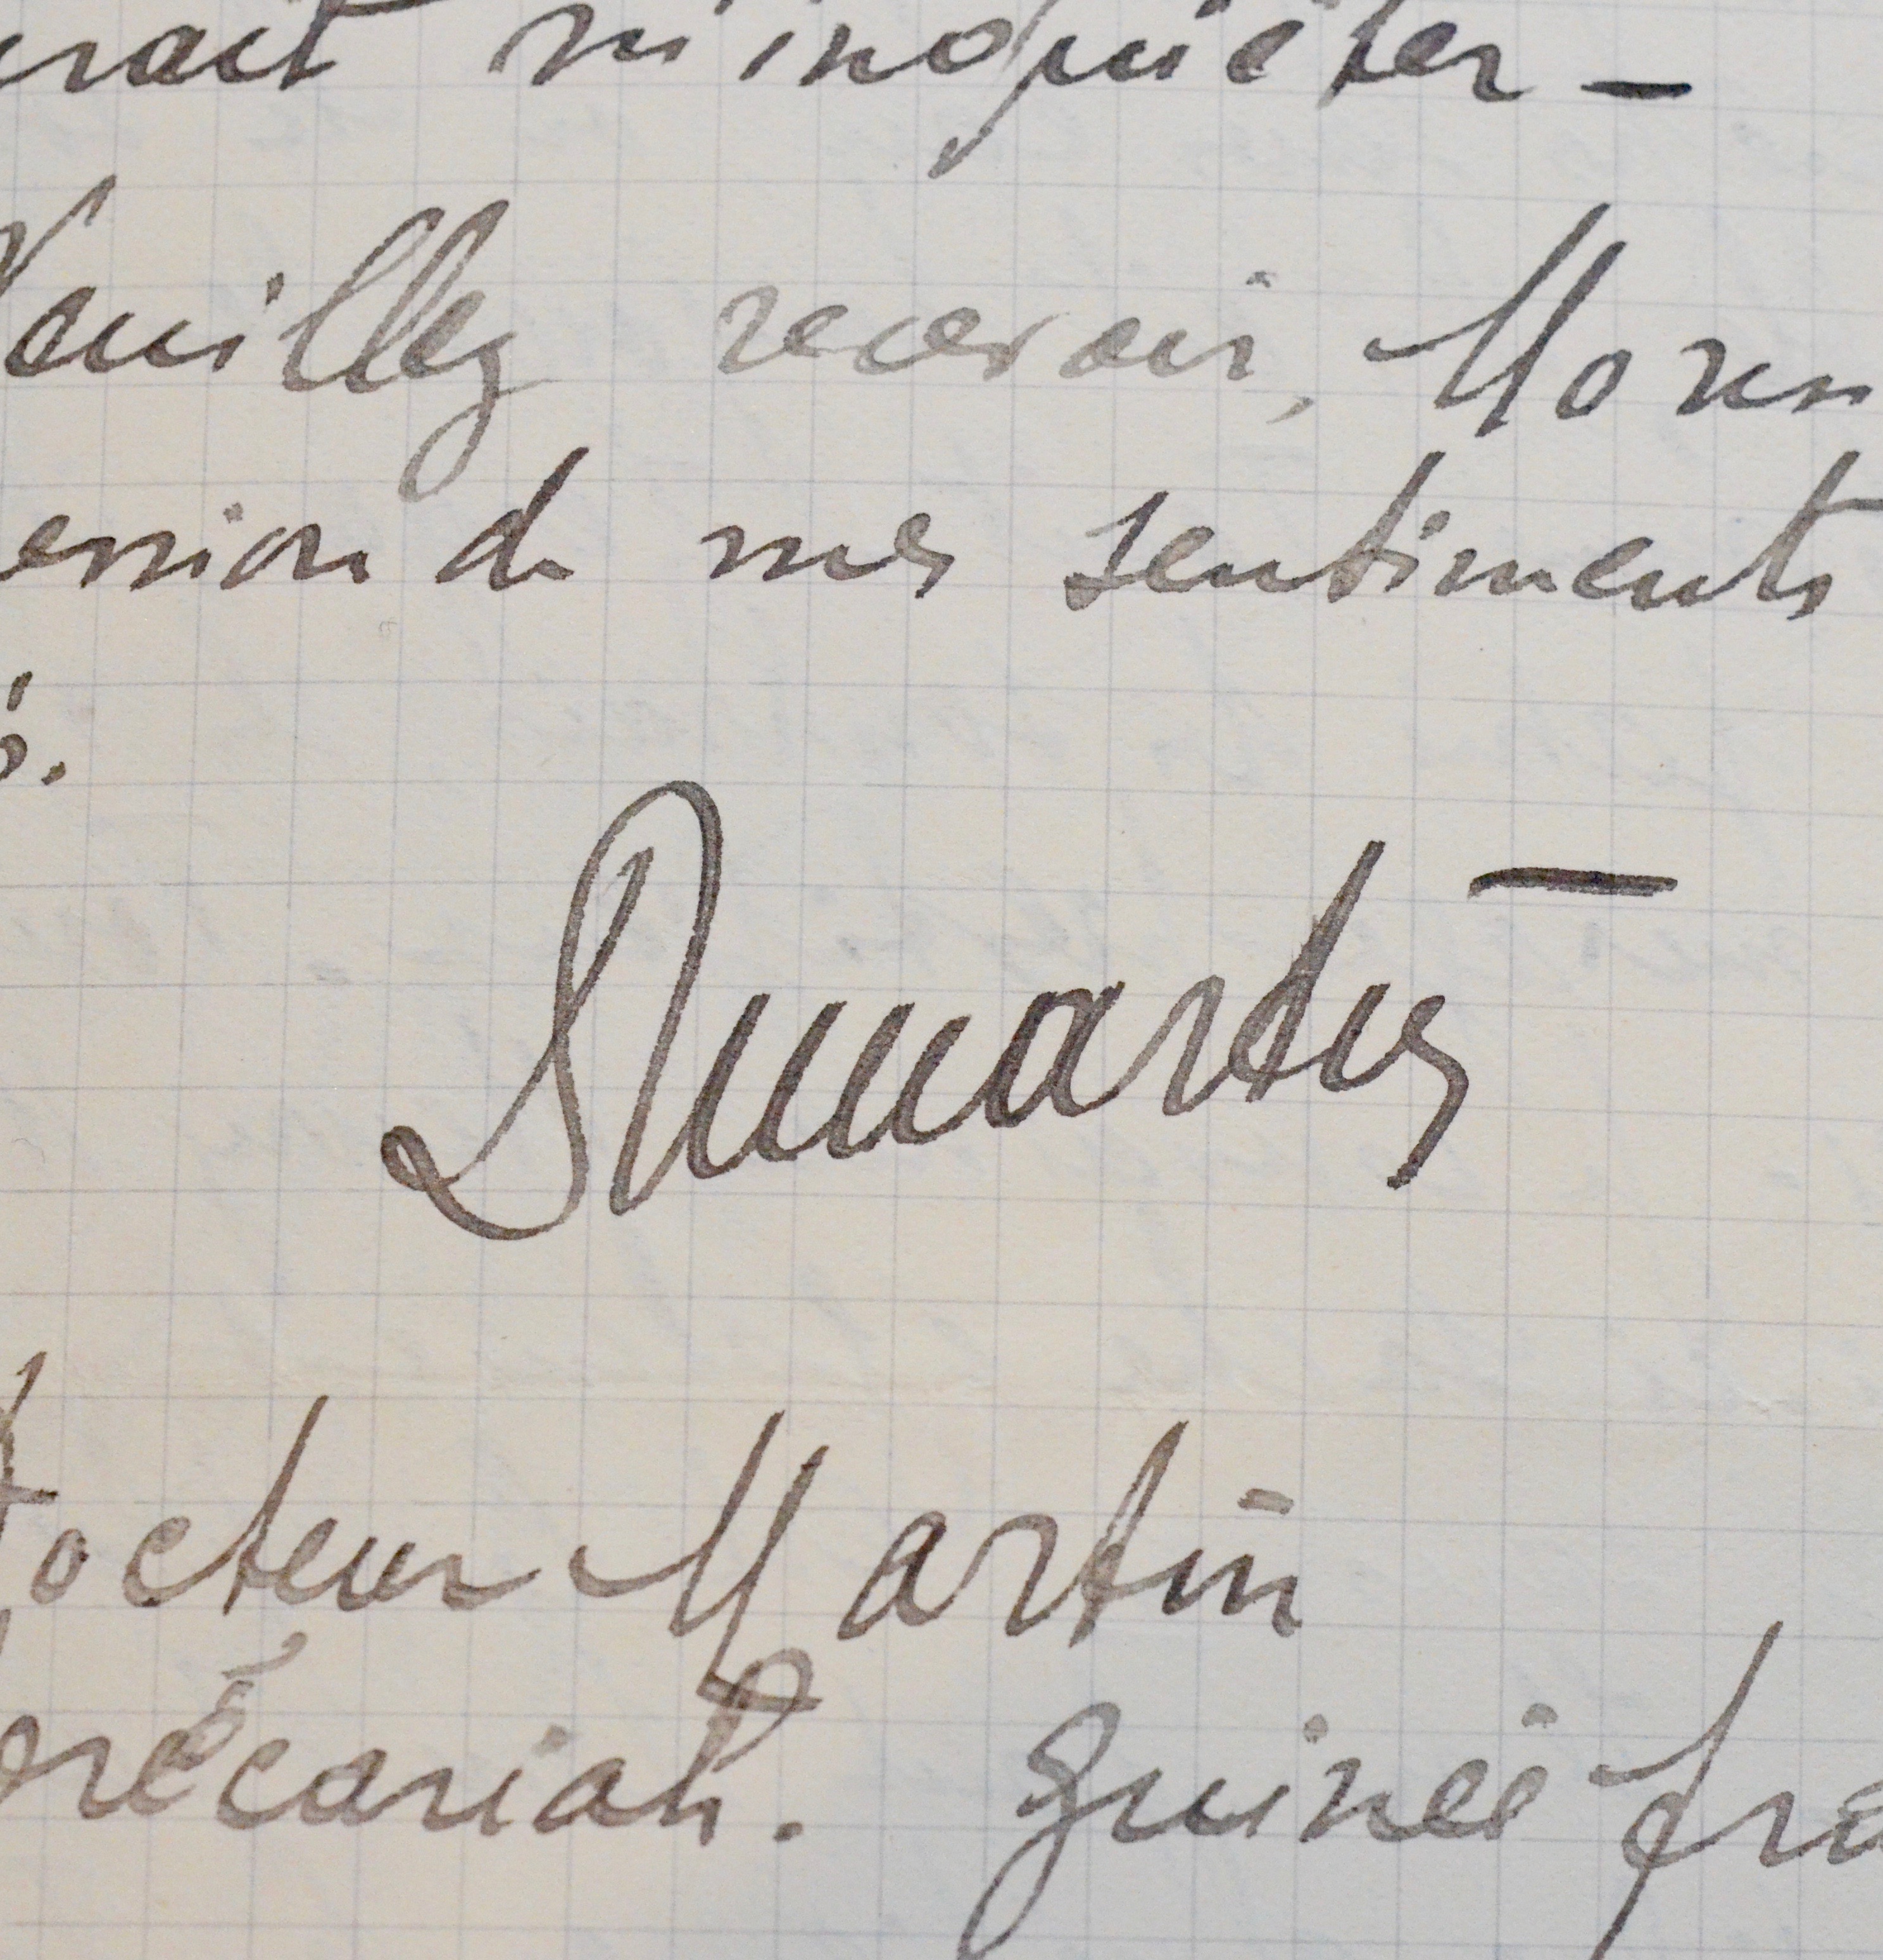 rait m'inquiéter —
Veuillez recevoir, Mons
ession de mes sentiments
s.
Docteur Martin
orécariah. Guinée fra